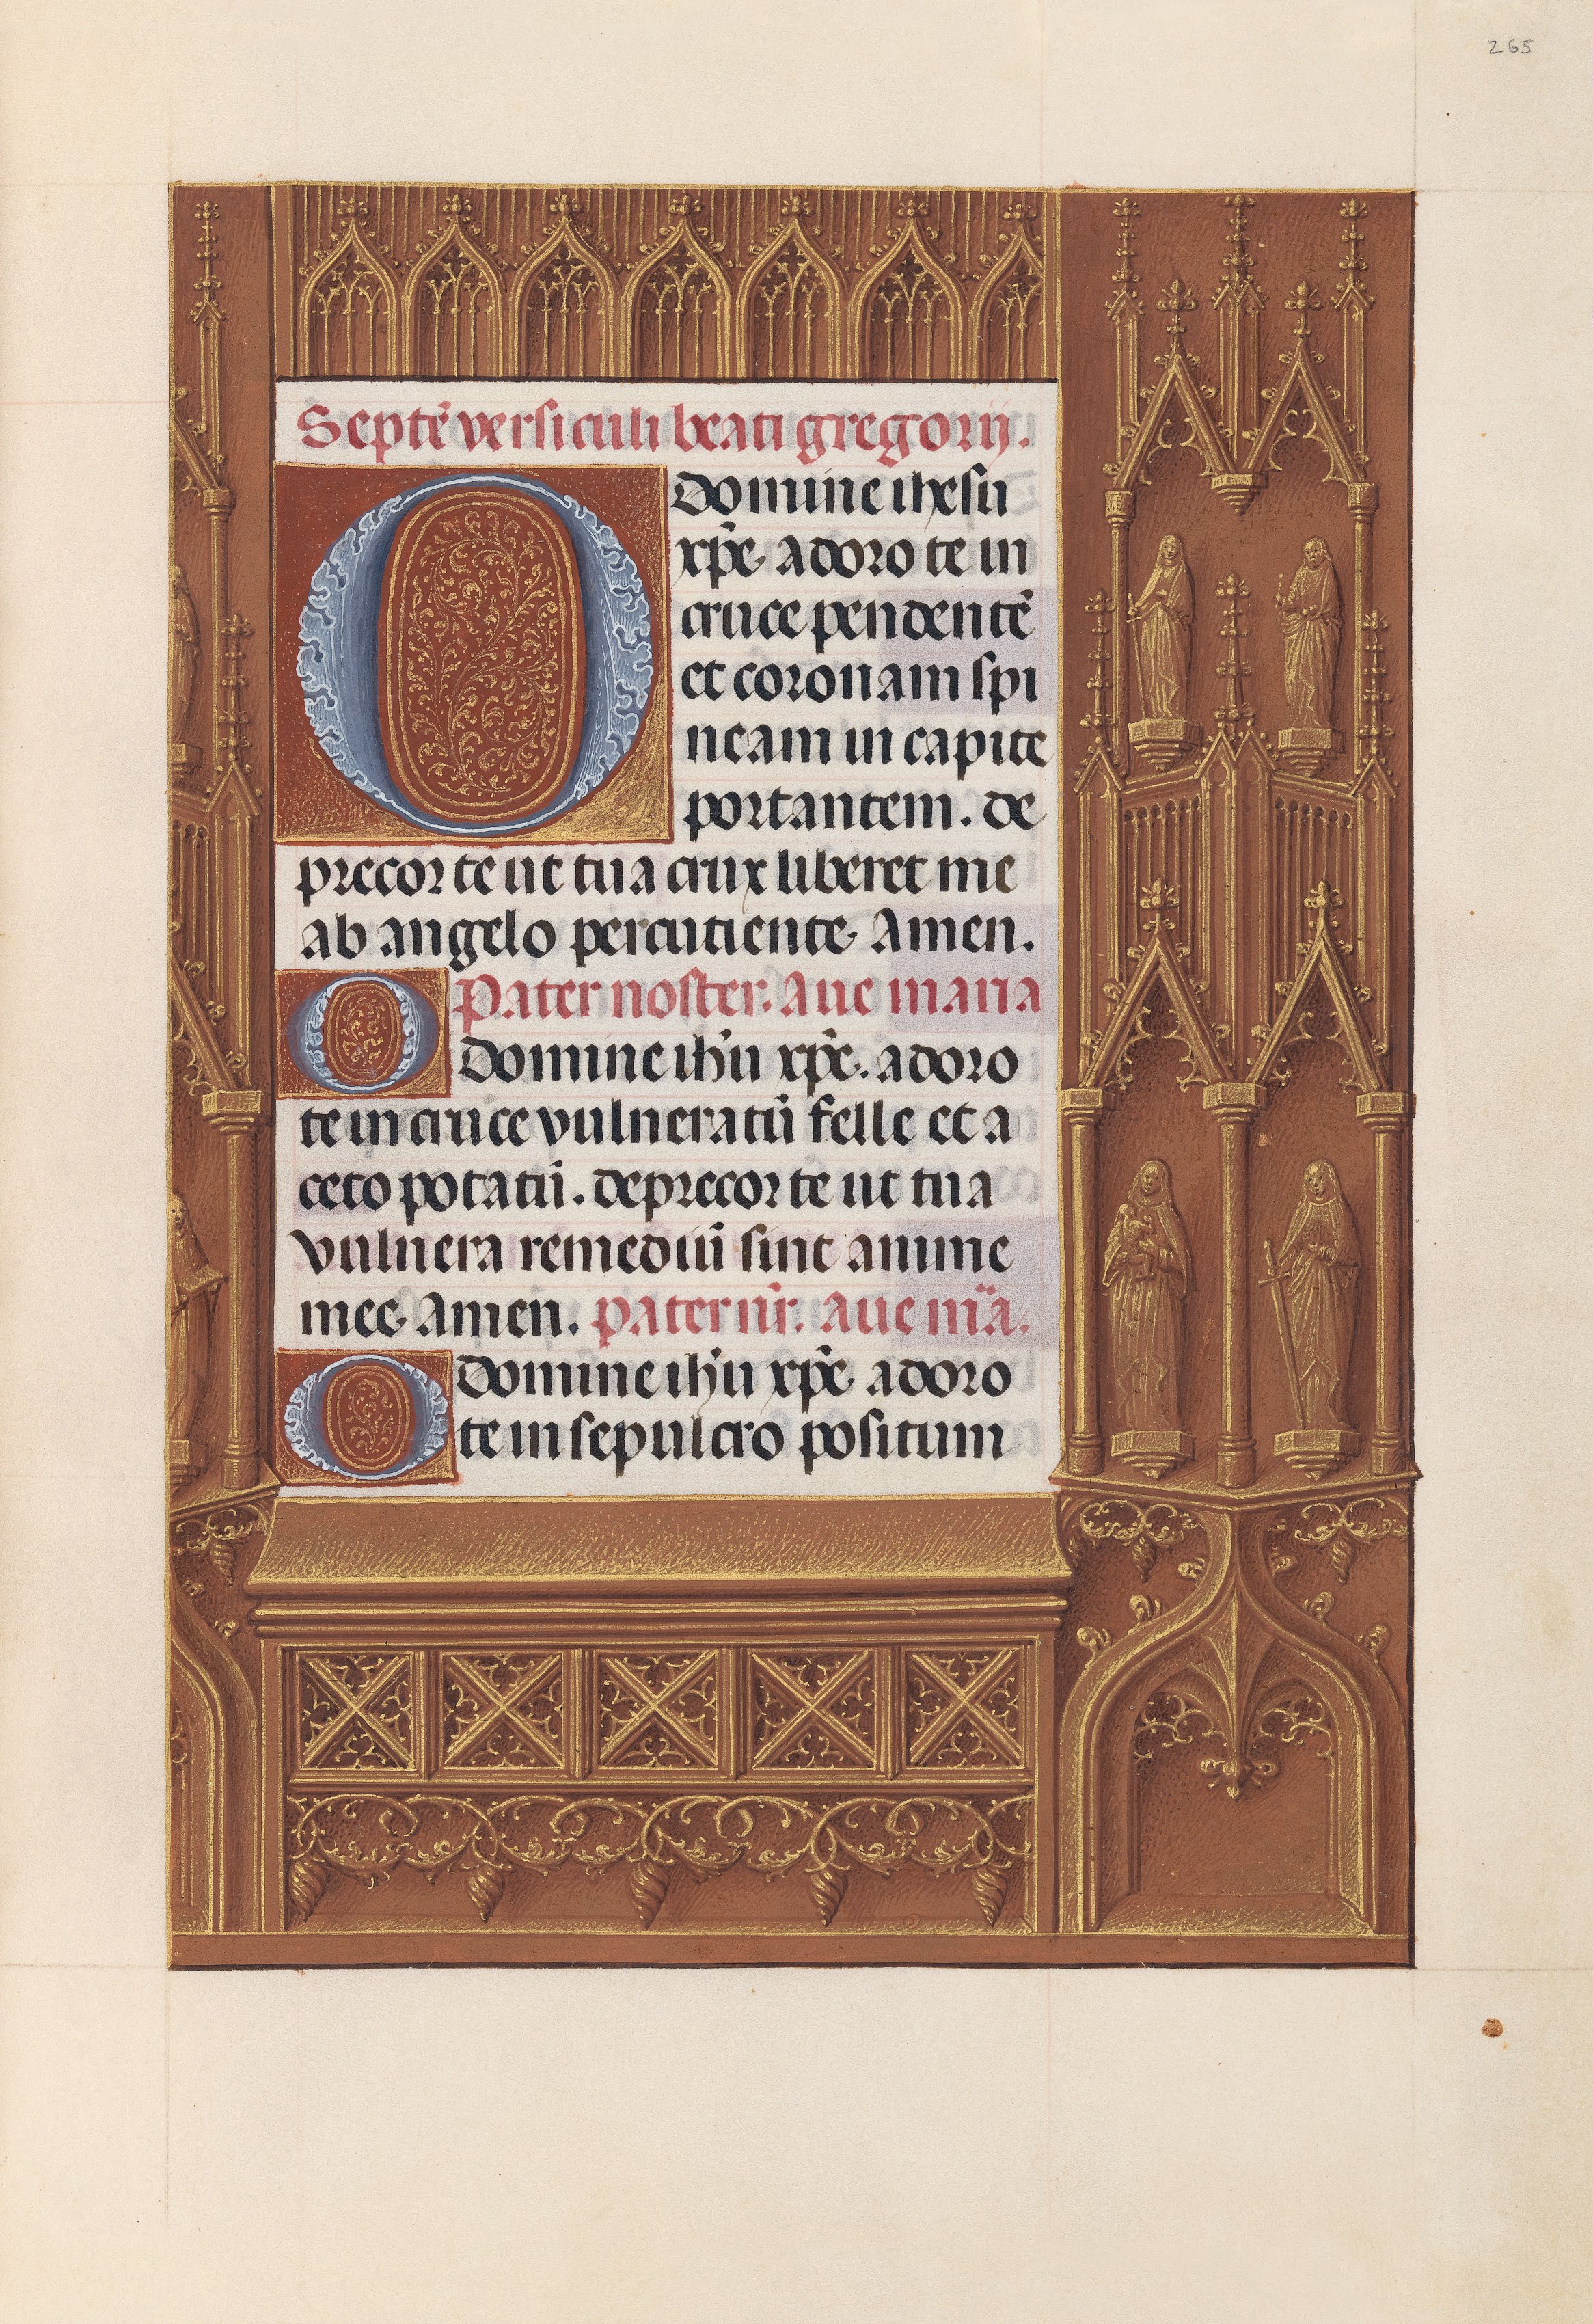 265
Septē versiculi beati gregorij.
O Domine ihesu
xp̄e adoro te in
cruce pendentē
et coronam spi
neam in capite
portantem. de
precor te ut tua crux liberet me
ab angelo percutiente Amen.
Pater noster. Aue maria
O Domine ihu̅ xp̄e. adoro
te in cruce vulneratū felle et a
ceto potatū. deprecor te ut tua
vulnera remediū sint anime
mee Amen. Pater nr̄. Aue m̄a.
O Domine ihu̅ xp̄e adoro
te in sepulcro positum